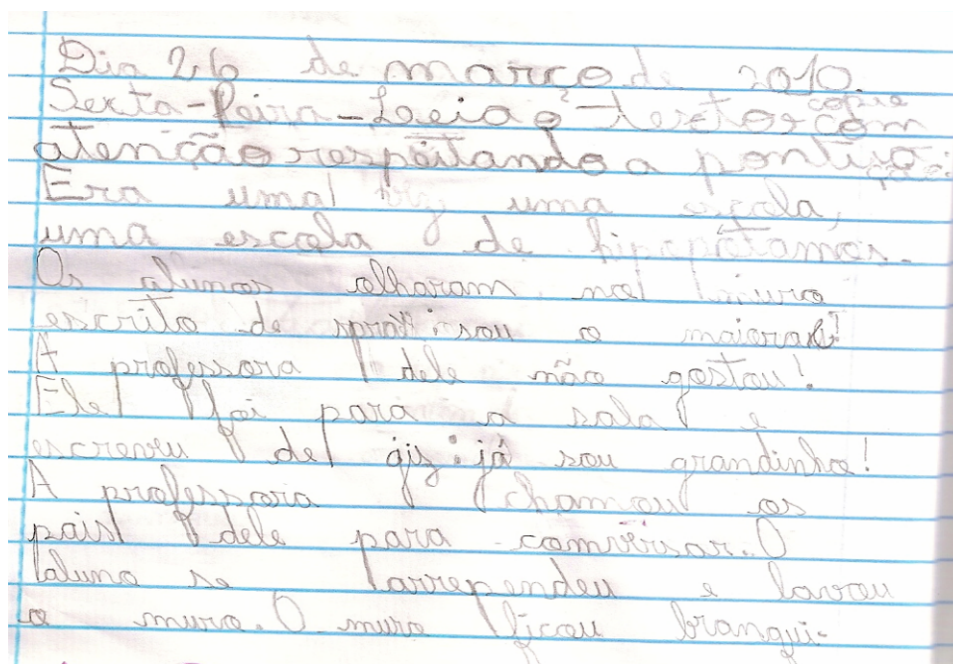 Dia 26 de março de 2010.
Sexta-feira - Leia o texto e copie com
atenção respeitando a pontuação:
Era uma vez uma escola,
uma escola de hipopótamos.
Os alunos olharam no muro
escrito de sprai: sou o maioral!
A professora dele não gostou!
Ele foi para a sala e
escreveu de giz: já sou grandinho!
A professora chamou os
pais dele para comversar. O
aluno se arrependeu e lavou
o muro. O muro ficou branqui-